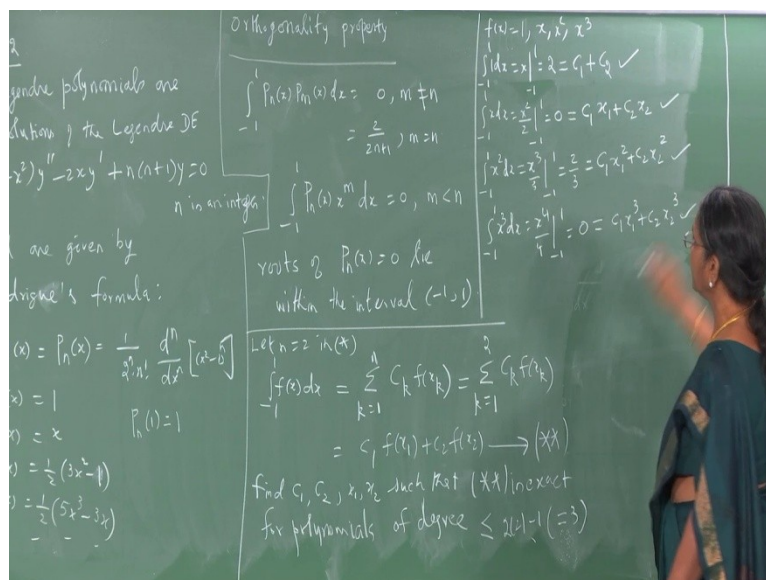 2
gendre polynomials are
olutions of the Legendre DE
-x²)y'' - 2xy' + n(n+1)y = 0
n is an integer
are given by
drigue's formula:
(x) = Pₙ(x) = 1/(2ⁿ n!) dⁿ/dxⁿ [(x²-1)ⁿ]
x) = 1
Pₙ(1) = 1
x) = x
) = 1/2 (3x²-1)
) = 1/2 (5x³-3x)
- - -
Orthogonality property
∫₋₁¹ Pₙ(x) Pₘ(x) dx = 0, m ≠ n
= 2/(2n+1), m = n
∫₋₁¹ Pₙ(x) xᵐ dx = 0, m < n
roots of Pₙ(x) = 0 lie
within the interval (-1, 1)
Let n = 2 in (*)
∫₋₁¹ f(x) dx = Σₖ₌₁ⁿ Cₖ f(xₖ) = Σₖ₌₁² Cₖ f(xₖ)
= C₁ f(x₁) + C₂ f(x₂) ⟶ (**)
find C₁, C₂, x₁, x₂ such that (**) is exact
for polynomials of degree ≤ 2(2)-1 (=3)
f(x) = 1, x, x², x³
∫₋₁¹ 1dx = x|₋₁¹ = 2 = C₁ + C₂ ✓
∫₋₁¹ xdx = x²/2|₋₁¹ = 0 = C₁x₁ + C₂x₂ ✓
∫₋₁¹ x²dx = x³/3|₋₁¹ = 2/3 = C₁x₁² + C₂x₂² ✓
∫₋₁¹ x³dx = x⁴/4|₋₁¹ = 0 = C₁x₁³ + C₂x₂³ ✓